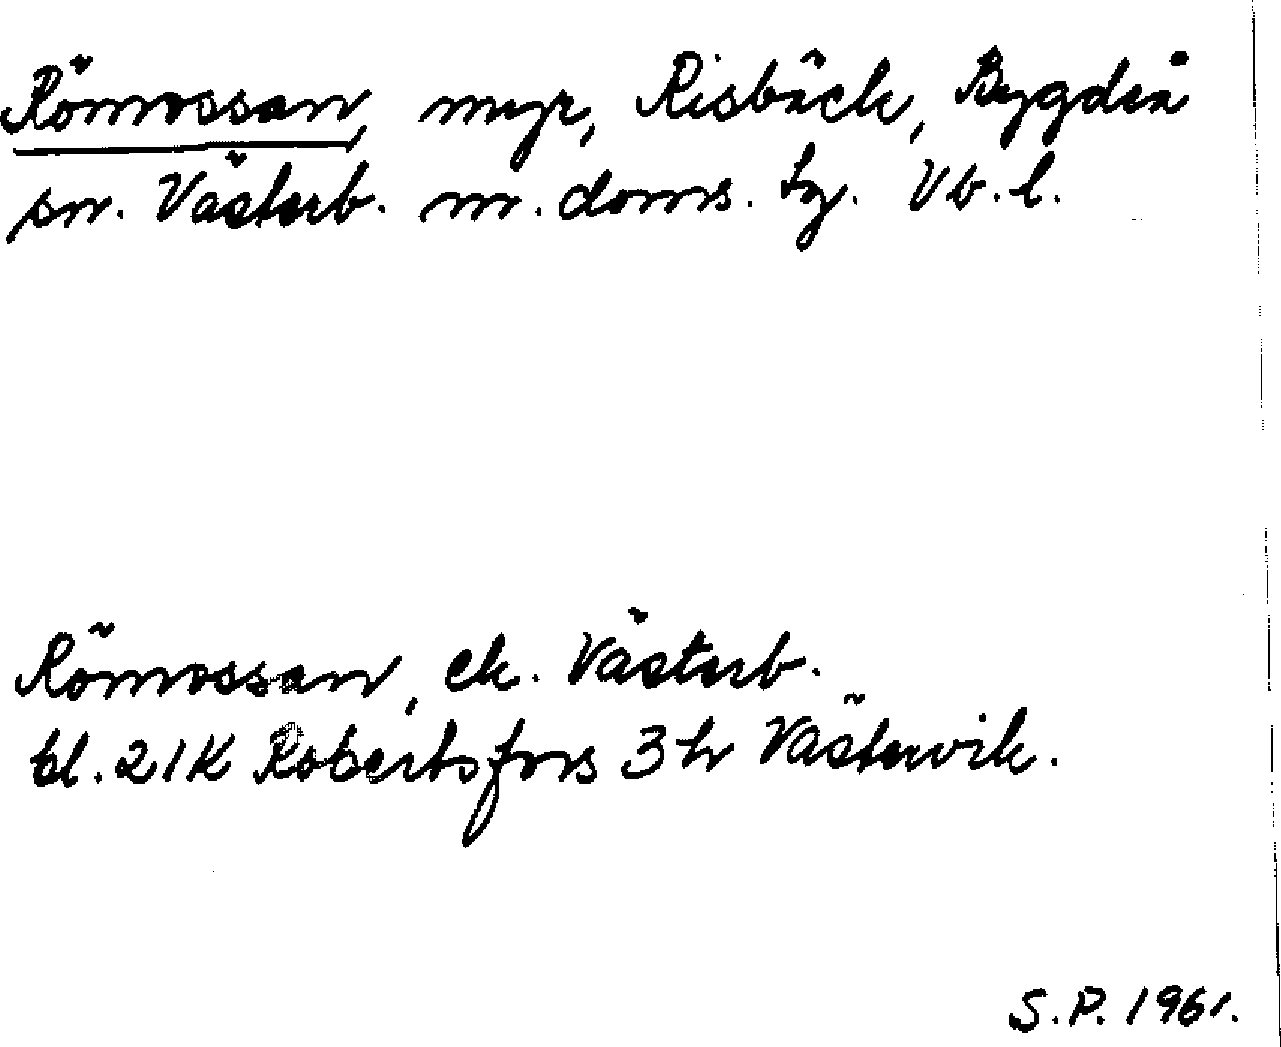 Römossan, myr, Risbäck, Bygdeå
sn. Västerb. n. doms. tg. Vb. l.
Römossan, ek. Västerb.
bl. 21K Robertsfors 3h Västervik.
S.P. 1961.